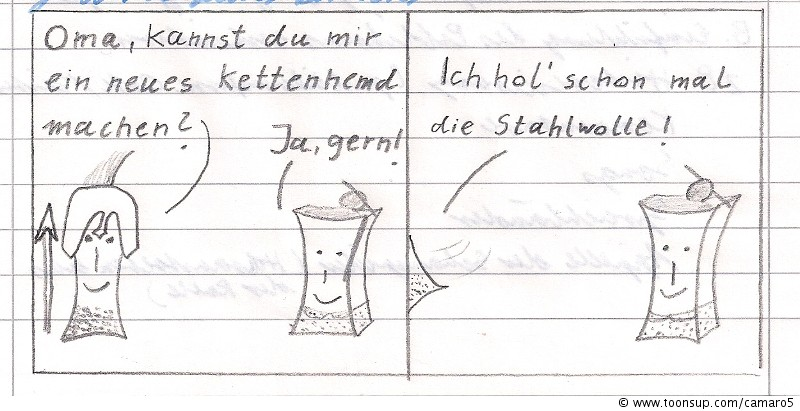 Oma, kannst du mir
ein neues Kettenhemd
machen?
Ja, gern!
Ich hol' schon mal
die Stahlwolle!
© www.toonsup.com/camaro5